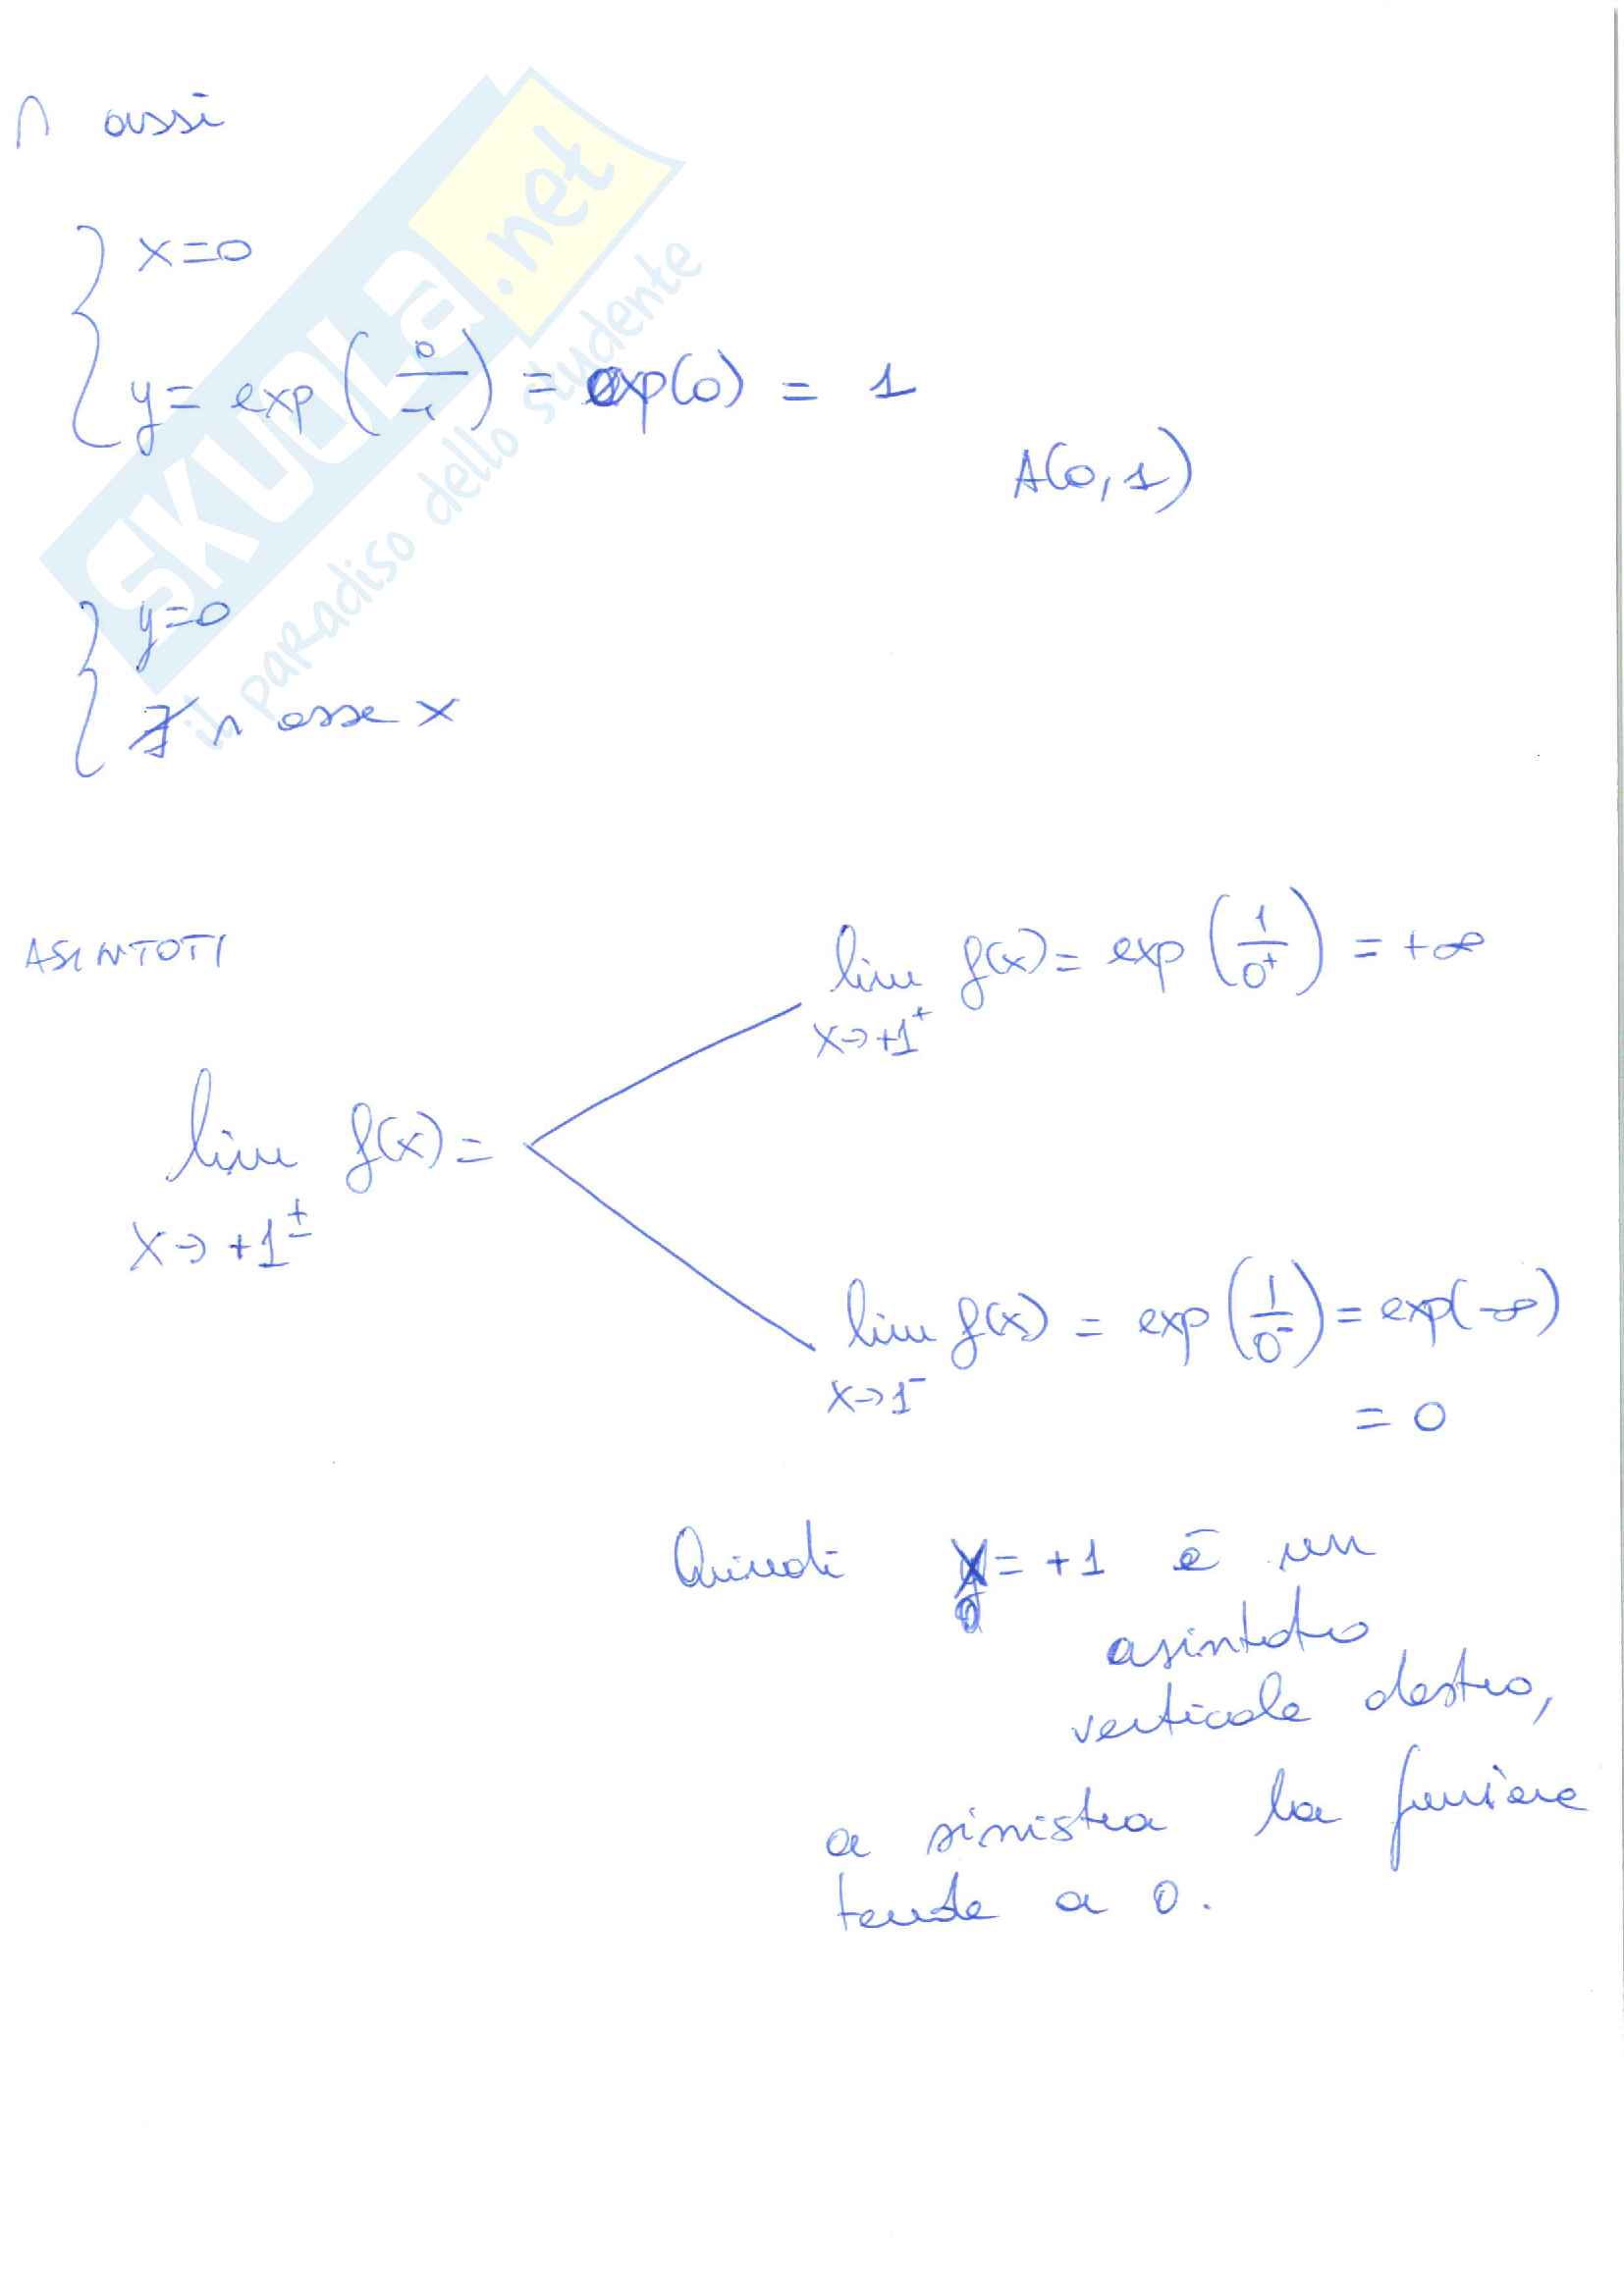 ∩ assi
x=0
y= exp (0/-1) = exp(0) = 1
A(0,1)
y=0
∄ ∩ asse x
SKUOLA.net
il paradiso dello studente
ASINTOTI
lim f(x) = exp (1/0⁺) = +∞
x→+1⁺
lim f(x) =
x→+1±
lim f(x) = exp (1/0⁻) = exp(-∞)
x→1⁻
= 0
Quindi = +1 è un
asintoto
verticale destro,
a sinistra la funzione
tende a 0.